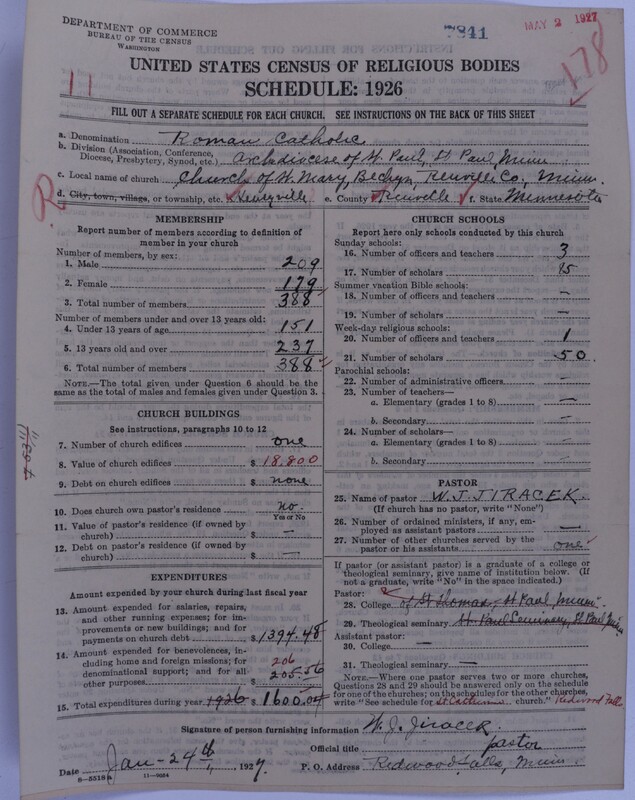 DEPARTMENT OF COMMERCE
BUREAU OF THE CENSUS
WASHINGTON
7841
MAY 2 1927
178
11
UNITED STATES CENSUS OF RELIGIOUS BODIES
SCHEDULE: 1926
FILL OUT A SEPARATE SCHEDULE FOR EACH CHURCH. SEE INSTRUCTIONS ON THE BACK OF THIS SHEET
a. Denomination Roman Catholic
b. Division (Association, Conference, Diocese, Presbytery, Synod, etc.) Archdiocese of St. Paul, St Paul, Minn
c. Local name of church Church of St. Mary, Bechyn, Renville Co., Minn.
R
d. City, town, village, or township, etc. Henryville e. County Renville f. State Minnesota
MEMBERSHIP
Report number of members according to definition of member in your church
Number of members, by sex:
1. Male 209
2. Female 179
3. Total number of members 388
Number of members under and over 13 years old:
4. Under 13 years of age 151
5. 13 years old and over 237
6. Total number of members 388
NOTE.—The total given under Question 6 should be
same as the total of males and females given under Question 3.
CHURCH BUILDINGS
See instructions, paragraphs 10 to 12
7. Number of church edifices one
8. Value of church edifices $ 18,800
9. Debt on church edifices $ none
10. Does church own pastor's residence? no.
Yes or No
11. Value of pastor's residence (if owned by
church) $ —
12. Debt on pastor's residence (if owned by
church) $ —
EXPENDITURES
Amount expended by your church during last fiscal year
13. Amount expended for salaries, repairs,
and other running expenses; for im-
provements or new buildings; and for
payments on church debt $ 1394.48
14. Amount expended for benevolences, in-
cluding home and foreign missions; for
denominational support; and for all
other purposes 206 205.56
15. Total expenditures during year 1926 $ 1600.04
CHURCH SCHOOLS
Report here only schools conducted by this church
Sunday schools:
16. Number of officers and teachers 3
17. Number of scholars 85
Summer vacation Bible schools:
18. Number of officers and teachers —
19. Number of scholars —
Week-day religious schools:
20. Number of officers and teachers 1
21. Number of scholars 50
Parochial schools:
22. Number of administrative officers —
23. Number of teachers—
a. Elementary (grades 1 to 8) —
b. Secondary —
24. Number of scholars—
a. Elementary (grades 1 to 8) —
b. Secondary —
PASTOR
25. Name of pastor W. J. JIRACEK.
(If church has no pastor, write "None")
26. Number of ordained ministers, if any, em-
ployed as assistant pastors —
27. Number of other churches served by the
pastor or his assistants one
If pastor (or assistant pastor) is a graduate of a college or
theological seminary, give name of institution below. (If
not a graduate, write "No" in the space indicated.)
Pastor:
28. College of St Thomas, St Paul Minn.
29. Theological seminary St Paul Seminary, St Paul Minn
Assistant pastor:
30. College —
31. Theological seminary —
NOTE.—Where one pastor serves two or more churches,
Questions 28 and 29 should be answered only on the schedule
for one of the churches; on the schedules for the other churches,
write "See schedule for St Catherine church." Redwood Falls
Signature of person furnishing information W. J. Jiracek
Official title pastor
Date Jan - 24th, 1927.
P. O. Address Redwood Falls, Minn.
8—5318a 11—9024